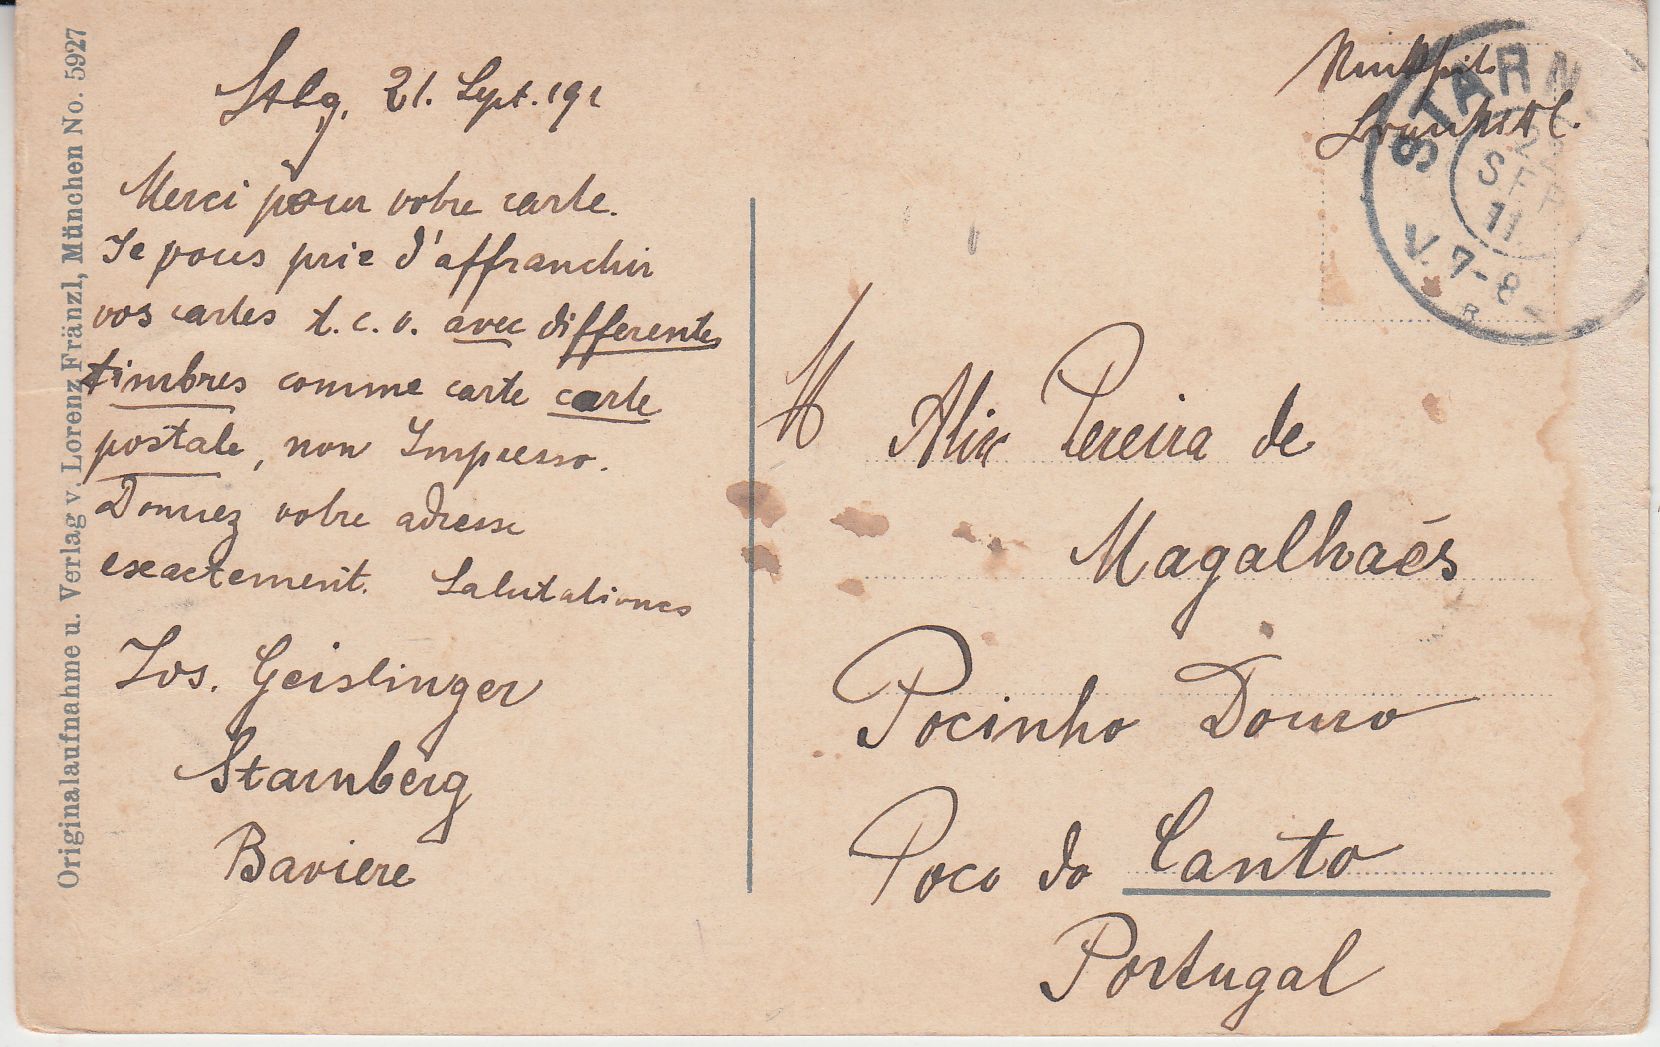 Originalaufnahme u. Verlag v. Lorenz Fränzl, München No. 5927
Stbg, 21. Sept. 191
Merci pour votre carte.
Je vous prie d'affranchir
vos cartes t. c. v. avec differents
timbres comme carte carte
postale, non Impresso.
Donnez votre adresse
exactement. Salutationes
Jos. Geislinger
Starnberg
Baviere
STARN
22
SEP
11
V. 7-8
B
M Alix Pereira de
Magalhaés
Pocinho Douro
Poco do Canto
Portugal